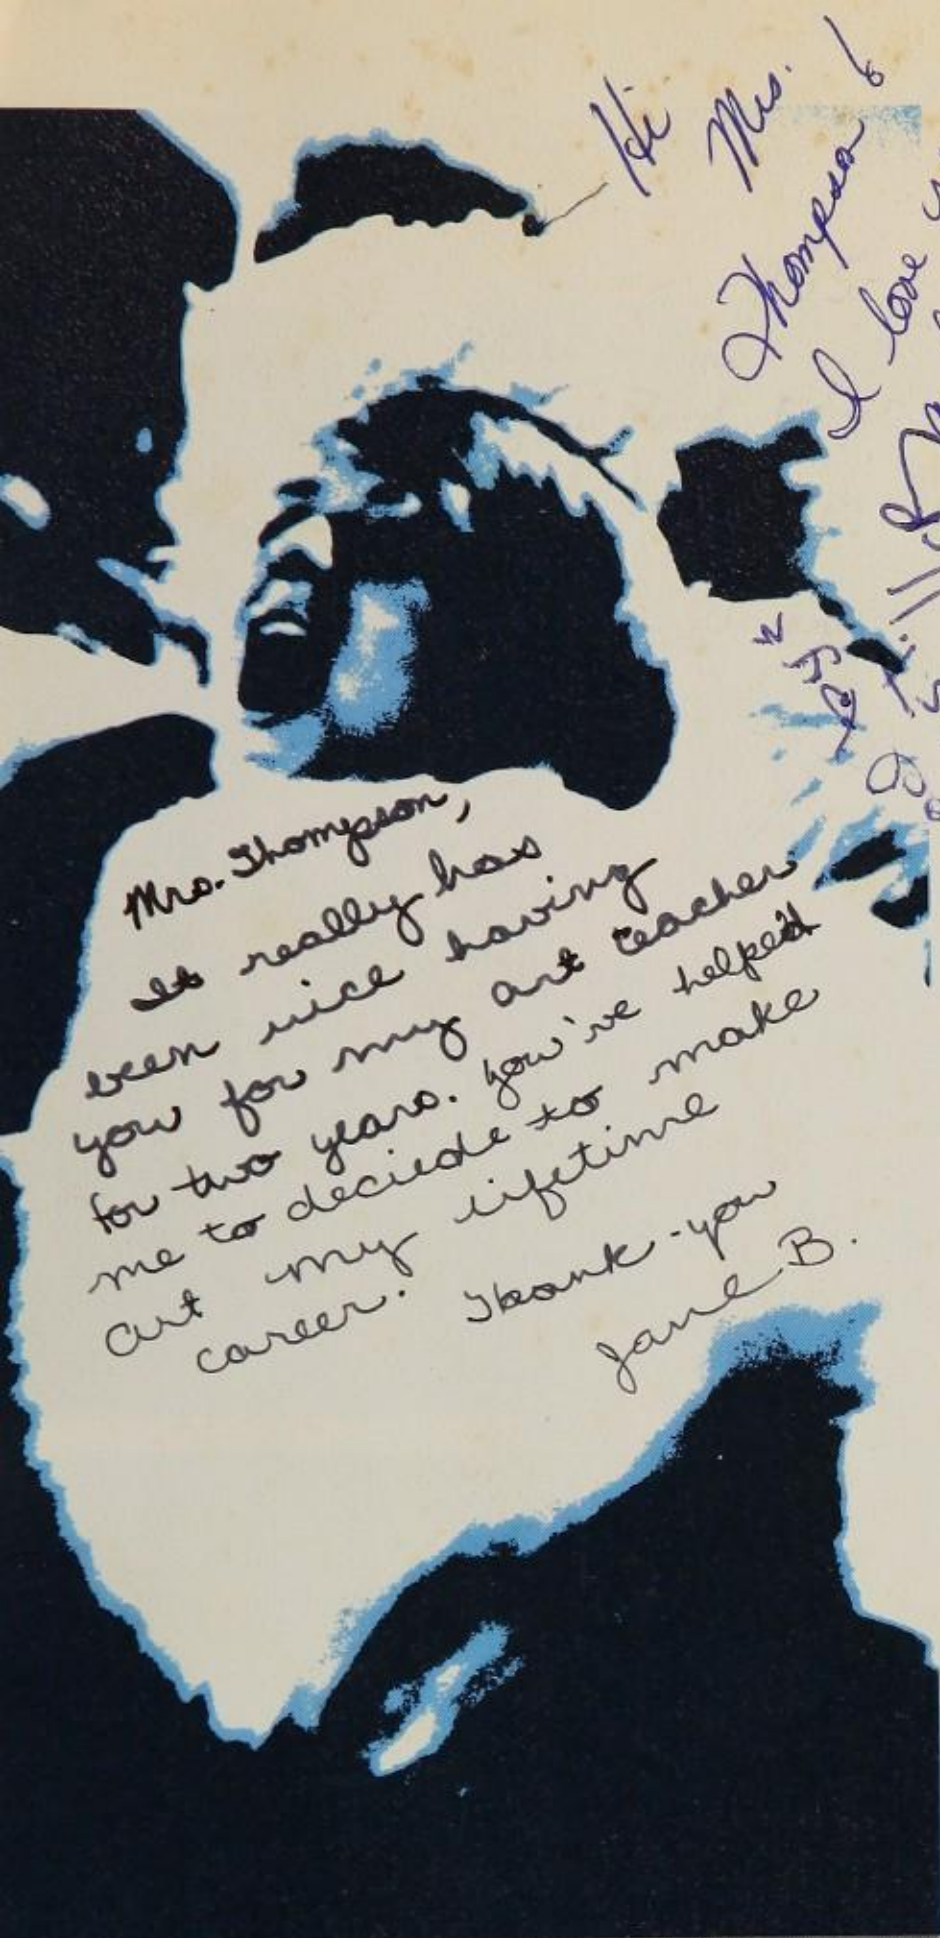 Hi
Mrs.
Thompson!
I love
Mrs. Thompson,
It really has
been nice having
you for my art teacher
for two years. You've helped
me to deciede to make
art my lifetime
career. Thank-you
Jane B.